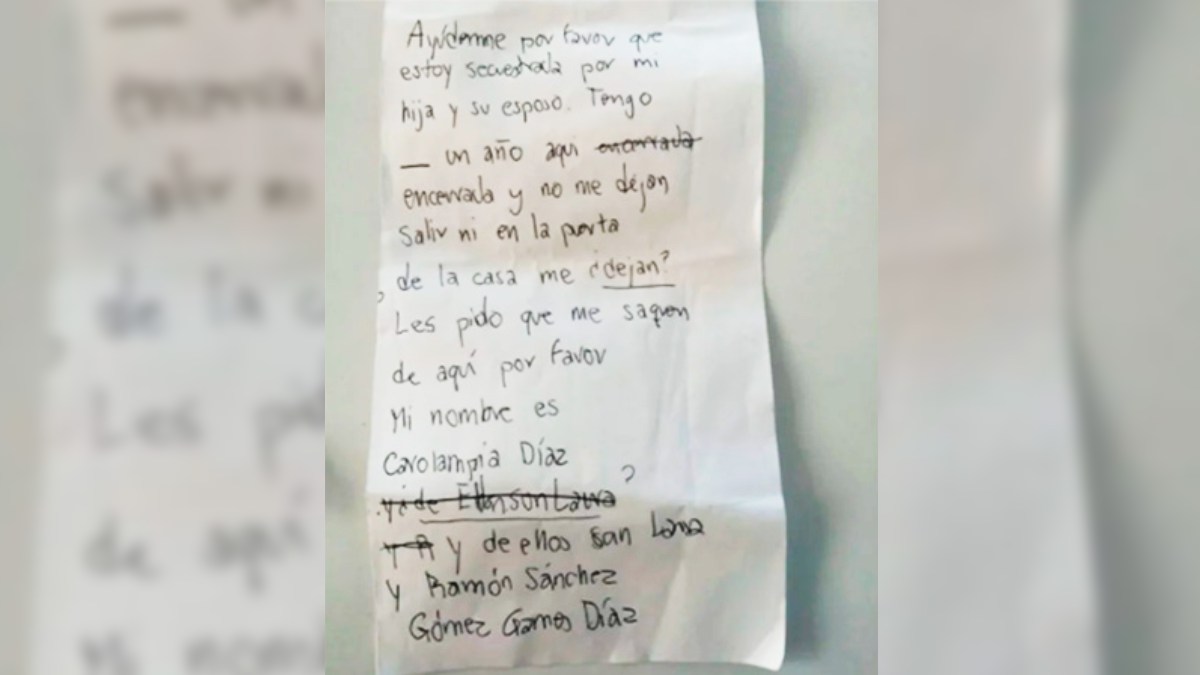 Ayúdenme por favor que
estoy secuestrada por mi
hija y su esposo. Tengo
_ un año aqui encerrada
encerrada y no me dejan
Salir ni en la puerta
de la casa me ¿dejan?
Les pido que me saquen
de aquí por favor
Mi nombre es
Carolampia Díaz
y de Ellos son Laura ?
y R y de ellos son Laura
y Ramón Sánchez
Gómez Gomes Díaz